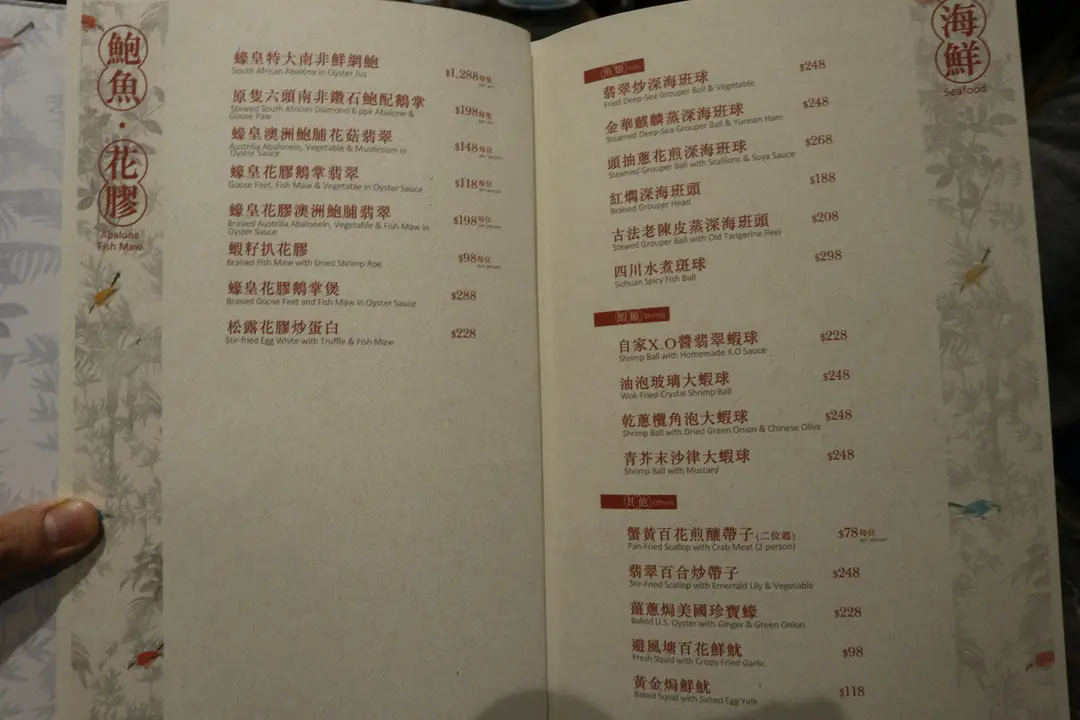 鮑魚・花膠
Abalone
Fish Maw
蠔皇特大南非鮮網鮑 $1,288每隻
South African Abalone in Oyster Jus per pcs
原隻六頭南非鑽石鮑配鵝掌 $198每隻
Stewed South African Diamond 6 ppk Abalone & per pcs
Goose Paw
蠔皇澳洲鮑脯花菇翡翠 $148每位
Austrilia Abalonein, Vegetable & Mushroom in per person
Oyster Sauce
蠔皇花膠鵝掌翡翠 $118每位
Goose Feet, Fish Maw & Vegetable in Oyster Sauce per person
蠔皇花膠澳洲鮑脯翡翠 $198每位
Braised Austrilia Abalonein, Vegetable & Fish Maw in per person
Oyster Sauce
蝦籽扒花膠 $98每位
Braised Fish Maw with Dried Shrimp Roe per person
蠔皇花膠鵝掌煲 $288
Braised Goose Feet and Fish Maw in Oyster Sauce
松露花膠炒蛋白 $228
Stir-fried Egg White with Truffle & Fish Maw
海鮮
Seafood
魚類
翡翠炒深海班球 $248
Fried Deep-Sea Grouper Ball & Vegetable
金華麒麟蒸深海班球 $248
Steamed Deep-Sea Grouper Ball & Yunnan Ham
頭抽蔥花煎深海班球 $268
Steamed Grouper Ball with Scallions & Soya Sauce
紅燜深海班頭 $188
Braised Grouper Head
古法老陳皮蒸深海班頭 $208
Stewed Grouper Ball with Old Tangerine Peel
四川水煮斑球 $298
Sichuan Spicy Fish Ball
蝦類 Shrimp
自家X.O醬翡翠蝦球 $228
Shrimp Ball with Homemade X.O Sauce
油泡玻璃大蝦球 $248
Wok-Fried Crystal Shrimp Ball
乾蔥欖角泡大蝦球 $248
Shrimp Ball with Dried Green Onion & Chinese Olive
青芥末沙律大蝦球 $248
Shrimp Ball with Mustard
其他 Others
蟹黃百花煎釀帶子(二位起) $78每位
Pan-Fried Scallop with Crab Meat (2 person) per person
翡翠百合炒帶子 $248
Stir-Fried Scallop with Emerrald Lily & Vegetable
薑蔥焗美國珍寶蠔 $228
Baked U.S. Oyster with Ginger & Green Onion
避風塘百花鮮魷 $98
Fresh Squid with Crispy Fried Garlic
黃金焗鮮魷 $118
Baked Squid with Salted Egg Yolk